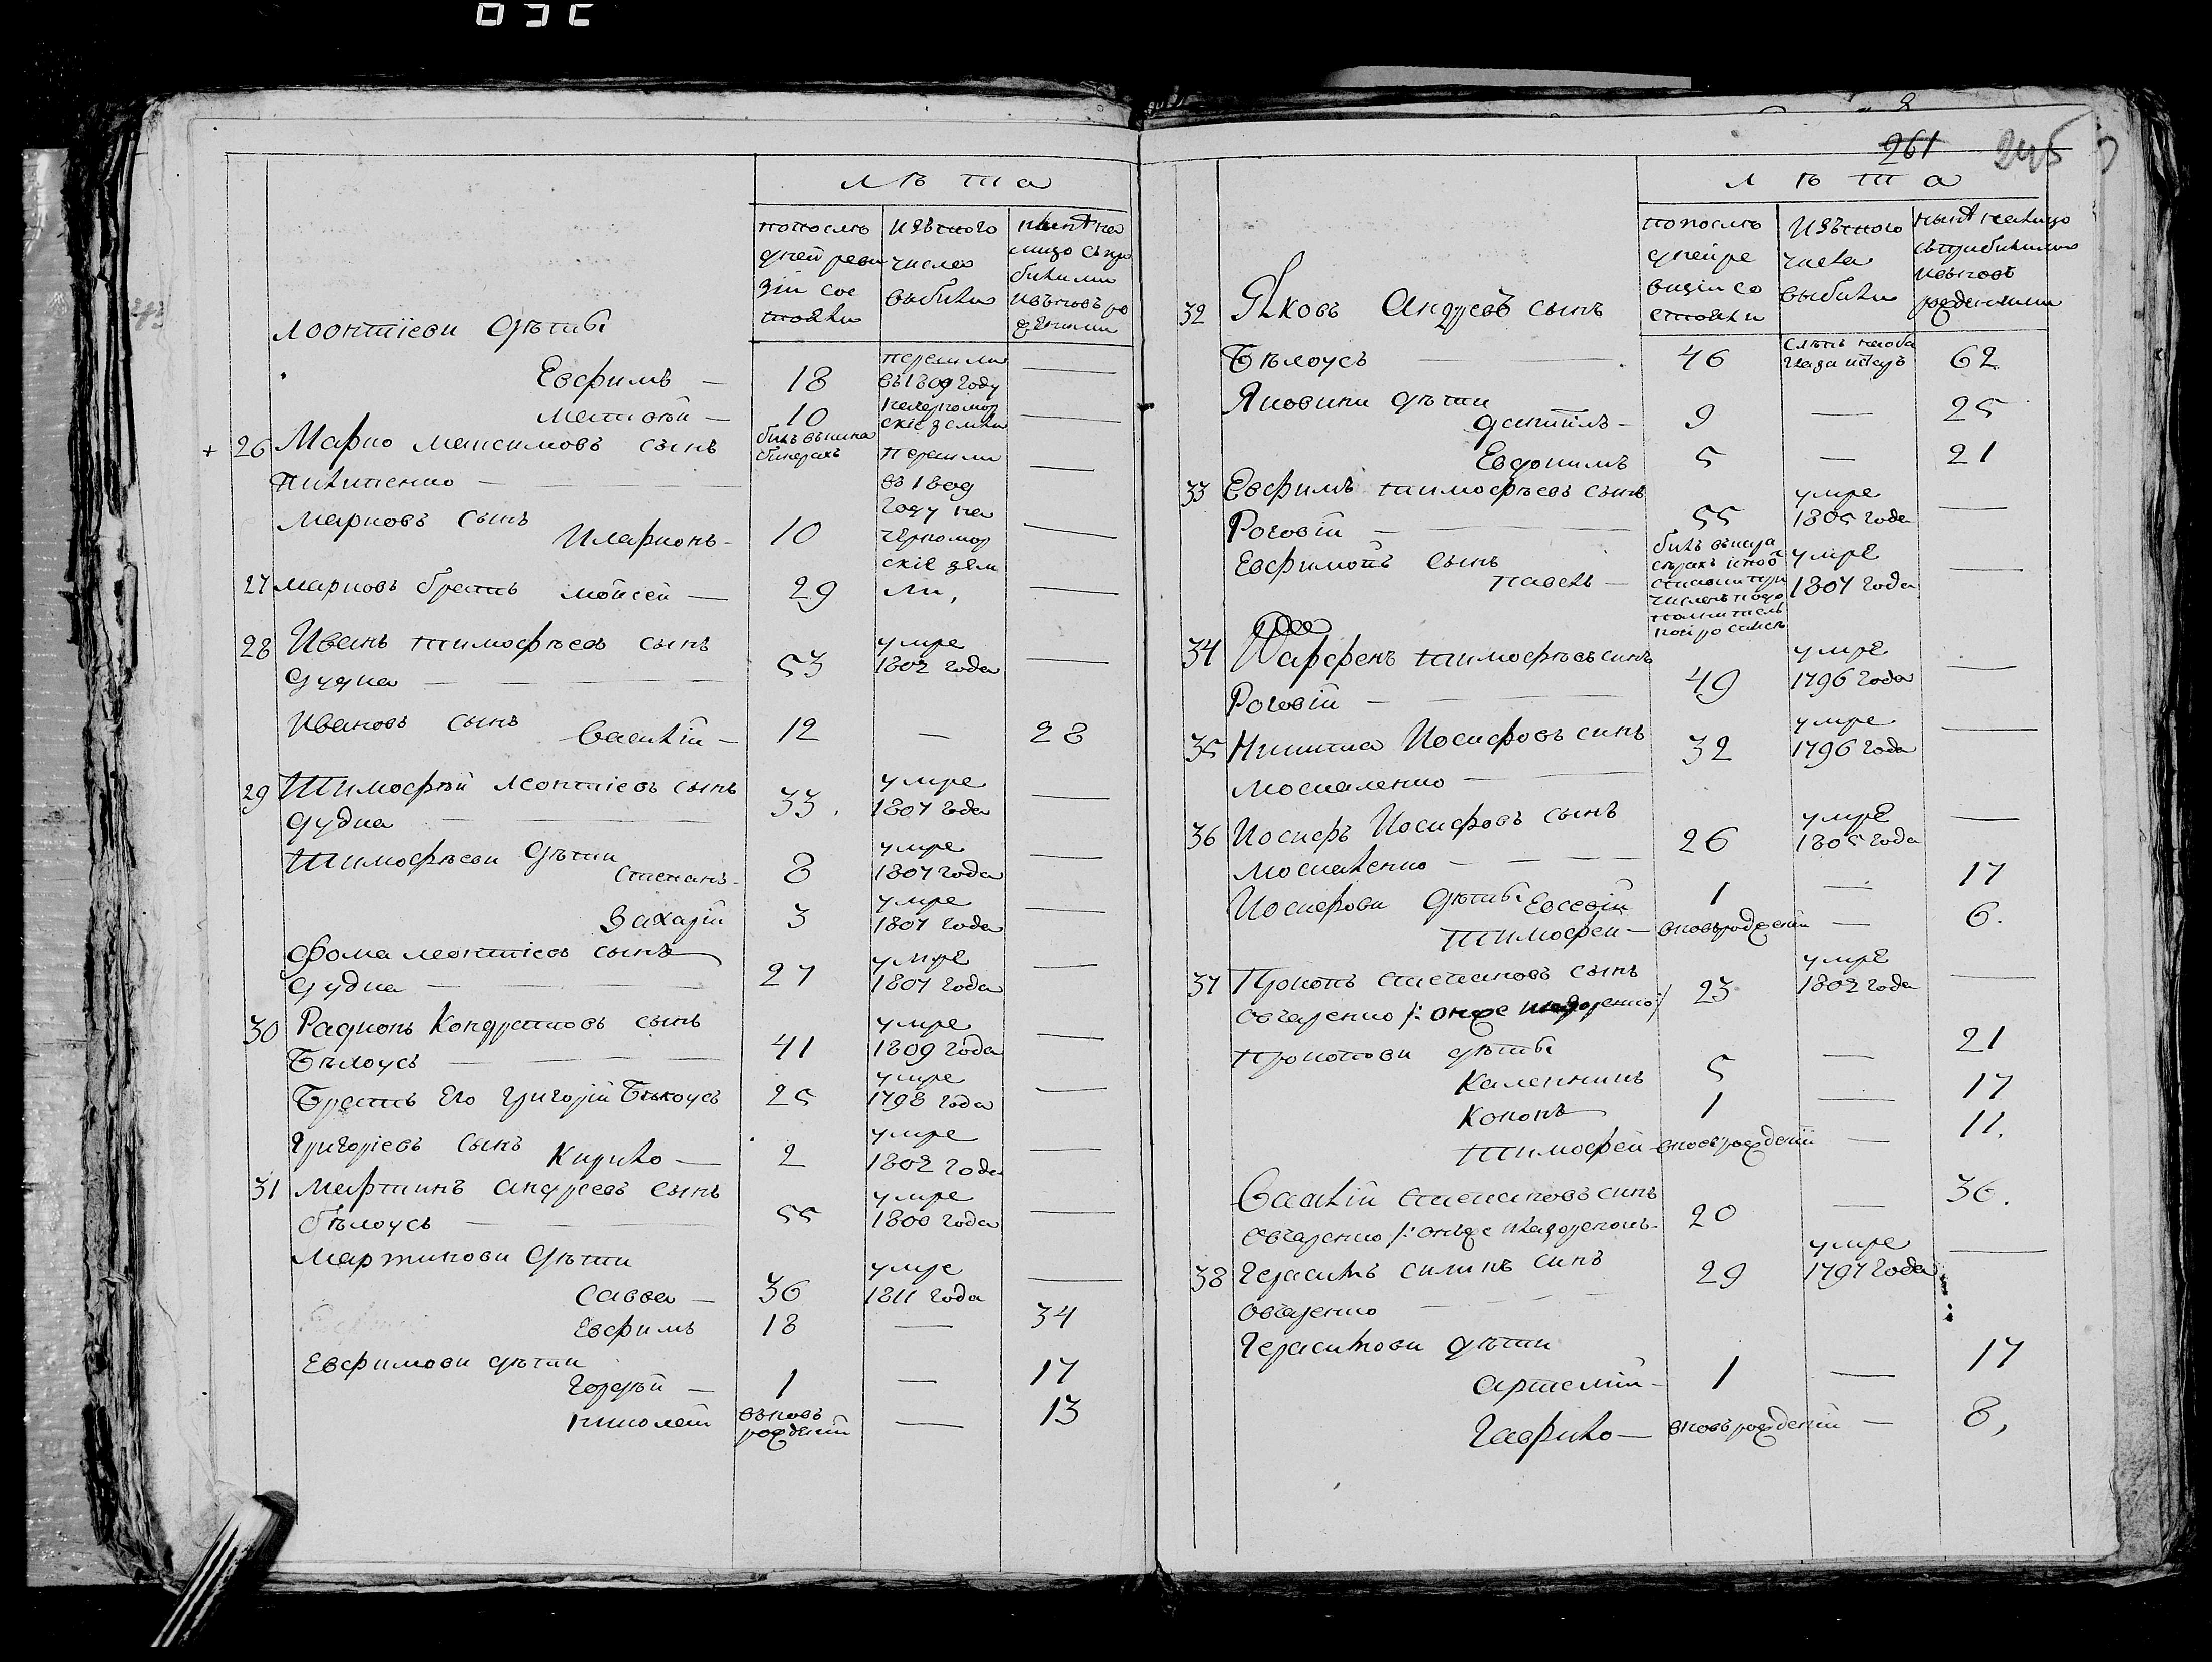 261 245
Л ѣ т а
по после
дней реви
зіи сос
тояли
Изъ того
числа
выбили
ныне на
лицо съ при
билими
и вновь ро
ждеными
Леонтіеви дѣти
Евфимъ — 18 —
Матвѣй — 10 —
перешли
въ 1809 году
на черномор
скіе земли
+ 26 Марко Максимовъ сынъ
Пилипенко —
билъ въ пика
бинерахъ
Марковъ сынъ
Иларионъ — 10 —
27 Марковъ братъ Мойсей — 29 —
перешли
въ 1809
году на
черномор
скіе зем
ли,
28 Иванъ Тимофѣевъ сынъ
Дудка — 53 умре 1802 года —
Ивановъ сынъ Василій — 12 — 28
29 Тимофѣй Леонтіевъ сынъ
Дудка — 33. умре 1807 года —
Тимофѣеви дѣти
Степанъ — 8 умре 1807 года —
Захарій 3 умре 1807 года —
Фома Леонтіевъ сынъ
Дудка — 27 умре 1807 года —
30 Радионъ Кондратовъ сынъ
Бѣлоусъ — 41 умре 1809 года —
Братъ Его Григорій Бѣлоусъ 25 умре 1798 года —
Григоріевъ сынъ Кирило — 2 умре 1802 года —
31 Мартинъ Андреевъ сынъ
бѣлоусъ — 55 умре 1800 года —
Мартинови дѣти
Савва — 36 умре 1811 года —
Евфимъ 18 — 34
Евфимови дѣти
Гордѣй — 1 — 17
Николай вновь рожденій — 13
Л ѣ т а
по после
дней ре
визіи со
стояли
Изъ того
числа
выбили
ныне налицо
съ прибилими
и вновь
рожденними
32 Яковъ Андреевъ сынъ
Бѣлоусъ — 46 слѣпъ на оба глаза 62
Яковини дѣти
Даніилъ — 9 — 25
Евдокимъ 5 — 21
33 Евфимъ Тимофѣевъ сынъ
Роговій — 55 умре 1805 года —
Евфимовъ сынъ
Павелъ — умре 1807 года —
34 Парфенъ Тимофѣевъ синъ
Роговій — 49 умре 1796 года —
35 Никита Иосифовъ синъ
Москаленко — 32 умре 1796 года —
36 Иосифъ Иосифовъ сынъ
Москаленко — 26 умре 1805 года —
Иосифови дѣти Евсевій 1 — 17
Тимофей — вновь рожденій — 6.
37 Прокопъ Степановъ сынъ
Овчаренко /: онже 23 умре 1802 года —
Прокопови дѣти
Каленникъ 5 — 21
Кононъ 1 — 17
Тимофей — вновь рожденій — 11.
Василій Степановъ синъ
Овчаренко /: онже 20 — 36.
38 Герасимъ Силинъ синъ
Овчаренко — 29 умре 1797 года —
Герасимови дѣти
Артемій — 1 — 17
Гаврило — вновь рожденій — 8,